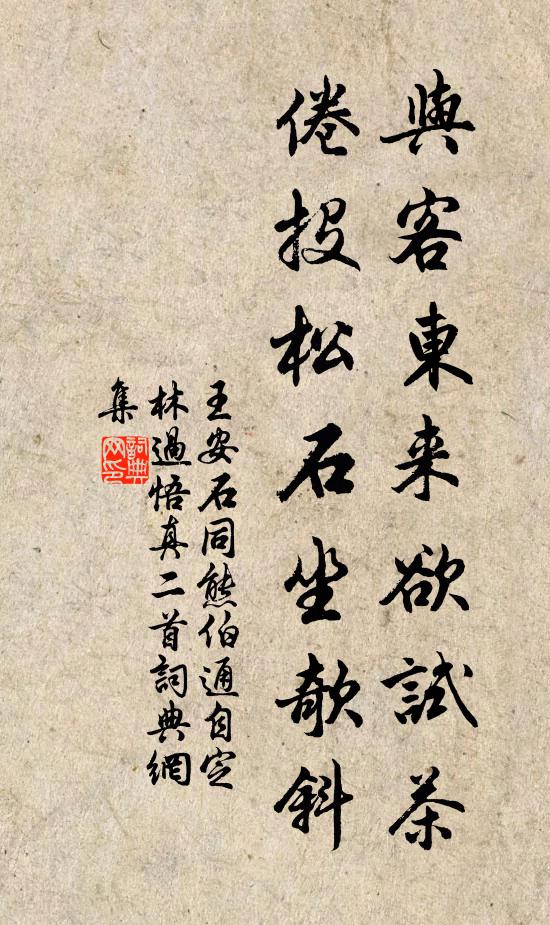 與客東来欲試茶
倦投松石坐欹斜
王安石同熊伯通自定
林過悟真二首詞典網
集
詞典網印